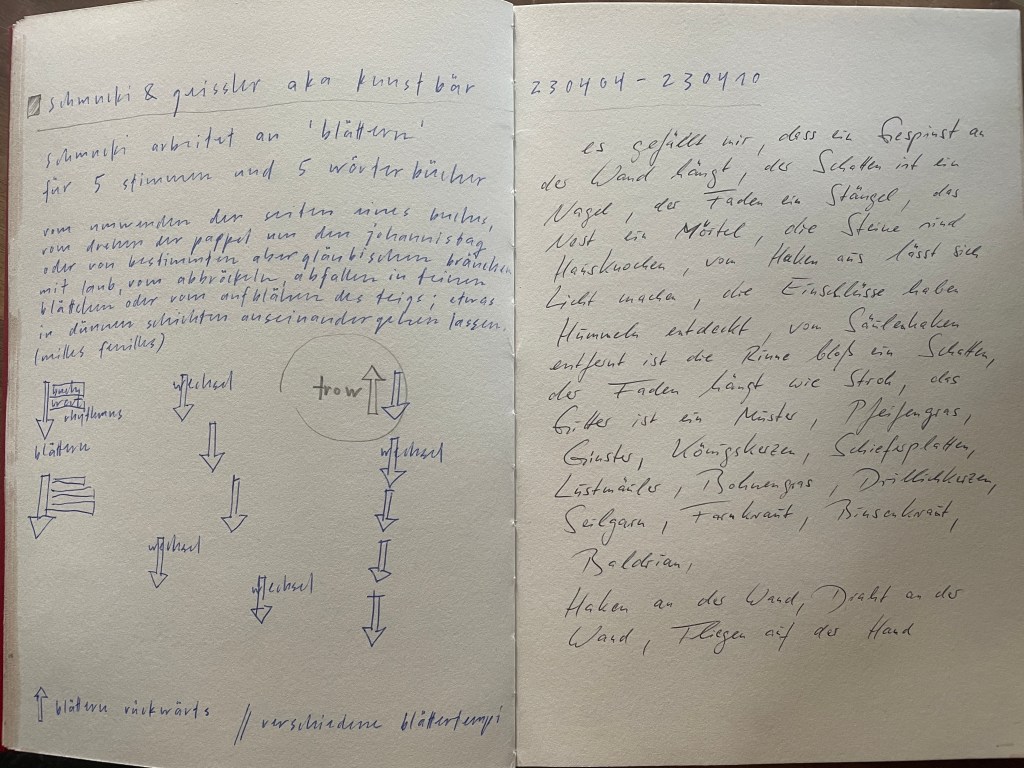 schmucki & geissler aka kunstbär
schmucki arbeitet an 'blättern'
für 5 stimmen und 5 wörterbücher
vom umwenden der seiten eines buches,
vom drehen der pappel um den johannistag
oder von bestimmten abergläubischen bräuchen
mit laub, vom abbröckeln, abfallen in feinen
blättchen oder vom aufblähen des teigs; etwas
in dünnen schichten auseinandergehen lassen.
(milles feuilles)
buch
wort
rhythmus
wechsel
trow
blättern
wechsel
wechsel
wechsel
blättern rückwärts
// verschiedene blättertempi
230404 - 230410
es gefällt mir, dass ein Gespinst an
der Wand hängt, der Schatten ist ein
Nagel, der Faden ein Stängel, das
Nest ein Mörtel, die Steine sind
Hausknochen, vom Haken aus lässt sich
Licht machen, die Einschlüsse haben
Hummeln entdeckt, vom Säulenhaken
entfernt ist die Rinne bloß ein Schatten,
der Faden hängt wie Stroh, das
Gitter ist ein Muster, Pfeifengras,
Ginster, Königskerzen, Schieferplatten,
Lustmäuler, Bohnengras, Drillichkerzen,
Seilgarn, Farnkraut, Binsenkraut,
Baldrian,
Haken an der Wand, Draht an der
Wand, Fliegen auf der Hand